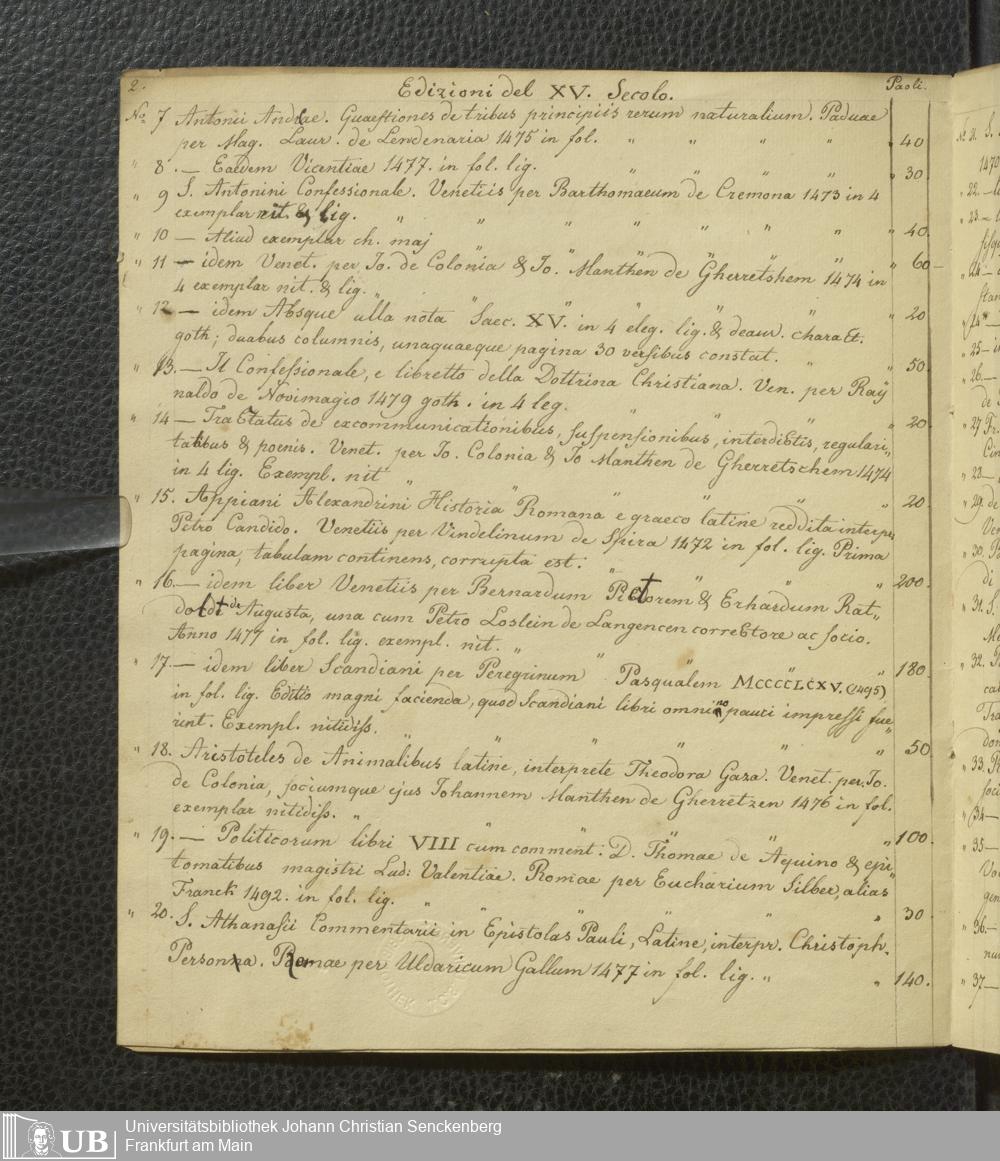 2. Edizioni del XV. Secolo. Paoli.
No. 7 Antonii Andreae. Quaestiones de tribus principiis rerum naturalium. Paduae
per Mag. Laur. de Lendenaria 1475 in fol. " " " " " 40
" 8. — Eaedem Vicentiae 1477. in fol. lig. " " " " 30.
" 9 S. Antonini Confessionale. Venetiis per Barthomaeum de Cremona 1473 in 4
exemplar nit. & lig. " " " " " " " " 40.
" 10 — Aliud exemplar ch. maj " " " " " " 60 —
" 11 — idem Venet. per Jo. de Colonia & Jo. Manthen de Gherretshem 1474 in
4 exemplar nit. & lig. " " " " " " 20
" 12 — idem Absque ulla nota Saec. XV. in 4 eleg. lig. & deaur. charact.
goth; duabus columnis, unaquaeque pagina 30 versibus constat. " " 50.
" 13. — Il Confessionale, e libretto della Dottrina Christiana. Ven. per Ray
naldo de Novimagio 1479 goth. in 4 leg. " " " " 20.
" 14 — Tractatus de excommunicationibus, suspensionibus, interdictis, regulari„
tatibus & poenis. Venet. per Jo. Colonia & Jo Manthen de Gherretschem 1474
in 4 lig. Exempl. nit " " " " " " 20.
" 15. Appiani Alexandrini Historia Romana e graeco latine reddita interpr.
Petro Candido. Venetiis per Vindelinum de Spira 1472 in fol. lig. Prima
pagina, tabulam continens, corrupta est. " " " " 200.
" 16. — idem liber Venetiis per Bernardum Pictorem & Erhardum Rat„
doldt de Augusta, una cum Petro Loslein de Langencen correctore ac socio.
Anno 1477 in fol. lig. exempl. nit. " " " " " 180.
" 17. — idem liber Scandiani per Peregrinum Pasqualem MCCCCLCXV. (1495)
in fol. lig. Editio magni facienda, quod Scandiani libri omnino pauci impressi fue„
rint. Exempl. nitidiss. " " " " " " 50
" 18. Aristoteles de Animalibus latine, interprete Theodora Gaza. Venet. per Jo.
de Colonia, sociumque ejus Johannem Manthen de Gherretzen 1476 in fol.
exemplar nitidiss. " " " " " " 100.
" 19. — Politicorum libri VIII cum comment. D. Thomae de Aquino & epi„
tomatibus magistri Lud: Valentiae. Romae per Eucharium Silber, alias
Franck 1492. in fol. lig. " " " " " " 30.
" 20. S. Athanasii Commentarii in Epistolas Pauli, Latine, interpr. Christoph.
Persona. Romae per Uldaricum Gallum 1477 in fol. lig. " " 140.
UB
Universitätsbibliothek Johann Christian Senckenberg
Frankfurt am Main